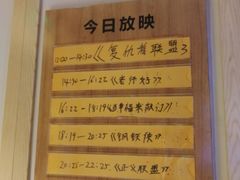 今日放映
12:00-14:30《复仇者联盟3
14:30-16:22《老师好》
16:22-18:19《幸福来敲门》
18:19-20:25《钢铁侠》
20:25-22:25《正义联盟》